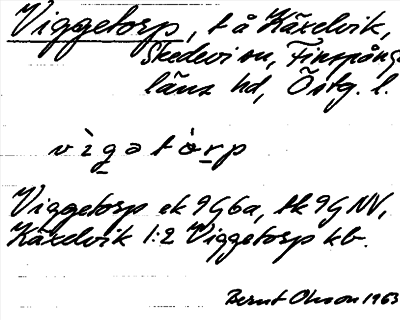 Viggetorp, t å Käxelvik,
Skedevi sn, Finspånga
läns hd, Östg. l.
vìgətòrp
Viggetorp ek 9G6a, tk 9G NV,
Käxelvik 1:2 Viggetorp kb.
Bernt Olsson 1963